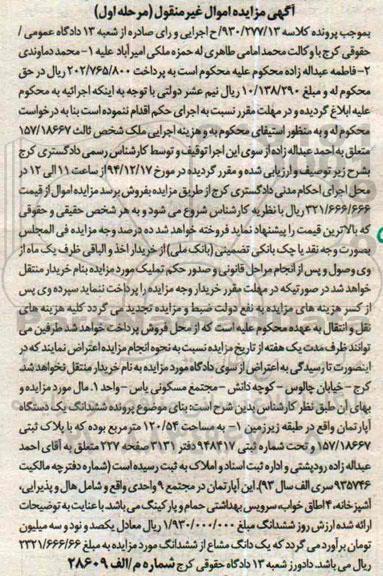 آگهی مزایده اموال غیر منقول (مرحله اول)
بموجب پرونده کلاسه ۹۳۰/۲۷۷/۱۳/ح اجرایی و رای صادره از شعبه ۱۳ دادگاه عمومی/
حقوقی کرج با وکالت محمد امامی طاهری له حمزه ملکی امیرآباد علیه ۱- محمد دماوندی
۲- فاطمه عبداله زاده محکوم علیه محکوم است به پرداخت ۲۰۲/۷۶۵/۸۰۰ ریال در حق
محکوم له و مبلغ ۱۰/۱۳۸/۲۹۰ ریال نیم عشر دولتی با توجه به اینکه اجرائیه به محکوم
علیه ابلاغ گردیده و در مهلت مقرر نسبت به اجرای حکم اقدام ننموده است بنا به درخواست
محکوم له و به منظور استیفای محکوم به و هزینه اجرایی ملک شخص ثالث ۱۵۷/۱۸۶۶۷
متعلق به احمد عبداله زاده از سوی این اجرا توقیف و توسط کارشناس رسمی دادگستری کرج
بشرح زیر توصیف و ارزیابی شده و مقرر گردیده در مورخ ۹۴/۱۲/۱۷ از ساعت ۱۱ الی ۱۲ در
محل اجرای احکام مدنی دادگستری کرج از طریق مزایده بفروش برسد مزایده اموال از قیمت
۳۲۱/۶۶۶/۶۶۶ ریال با نظریه کارشناس شروع می شود و به هر شخص حقیقی و حقوقی
که بالاترین قیمت را پیشنهاد نماید فروخته خواهد شد ده درصد وجه مزایده فی المجلس
بصورت وجه نقد یا چک بانکی تضمینی (بانک ملی) از خریدار اخذ و الباقی ظرف یک ماه از
وی وصول و پس از انجام مراحل قانونی و صدور حکم تملیک مورد مزایده بنام خریدار منتقل
خواهد شد در صورتیکه در مهلت مقرر خریدار وجه مزایده را پرداخت ننماید سپرده وی پس
از کسر هزینه های مزایده به نفع دولت ضبط و مزایده تجدید می گردد کلیه هزینه های
نقل و انتقال به عهده محکوم علیه است که از محل فروش پرداخت خواهد شد طرفین می
توانند ظرف مدت یک هفته از تاریخ مزایده نسبت به نحوه انجام مزایده اعتراض نمایند که در
اینصورت تا رسیدگی به اعتراض از سوی دادگاه مورد مزایده به نام خریدار منتقل نخواهد شد.
کرج – خیابان چالوس – کوچه دانش – مجتمع مسکونی یاس – واحد ۱. مال مورد مزایده و
بهای آن طبق نظر کارشناس بدین شرح است: بنای موضوع پرونده ششدانگ یک دستگاه
آپارتمان واقع در طبقه زیرزمین ۱- به مساحت ۱۲۰/۵۴ متر مربع بوده که با پلاک ثبتی
۱۵۷/۱۸۶۶۷ و تحت شماره ثبتی ۹۴۸۴۱۷ دفتر ۳۱۳۱ صفحه ۲۲۷ متعلق به آقای احمد
عبداله زاده رودپشتی و اداره ثبت اسناد و املاک به ثبت رسیده است (شماره دفترچه مالکیت
۹۳۵۷۴۶ سری الف سال ۹۳). این آپارتمان در مجتمع ۹ واحدی واقع و شامل هال و پذیرایی،
آشپزخانه، ۴ اطاق خواب، سرویس بهداشتی حمام و پارکینگ می باشد. با عنایت به توضیحات
ارائه شده ارزش روز ششدانگ مبلغ ۱/۹۳۰/۰۰۰/۰۰۰ ریال معادل یکصد و نود و سه میلیون
تومان برآورد می گردد که یک دانگ مشاع از ششدانگ مورد مزایده به مبلغ ۳۳۲۱/۶۶۶/۶۶
ریال می باشد. دادورز شعبه ۱۳ دادگاه حقوقی کرج شماره م/الف ۲۸۶۰۹